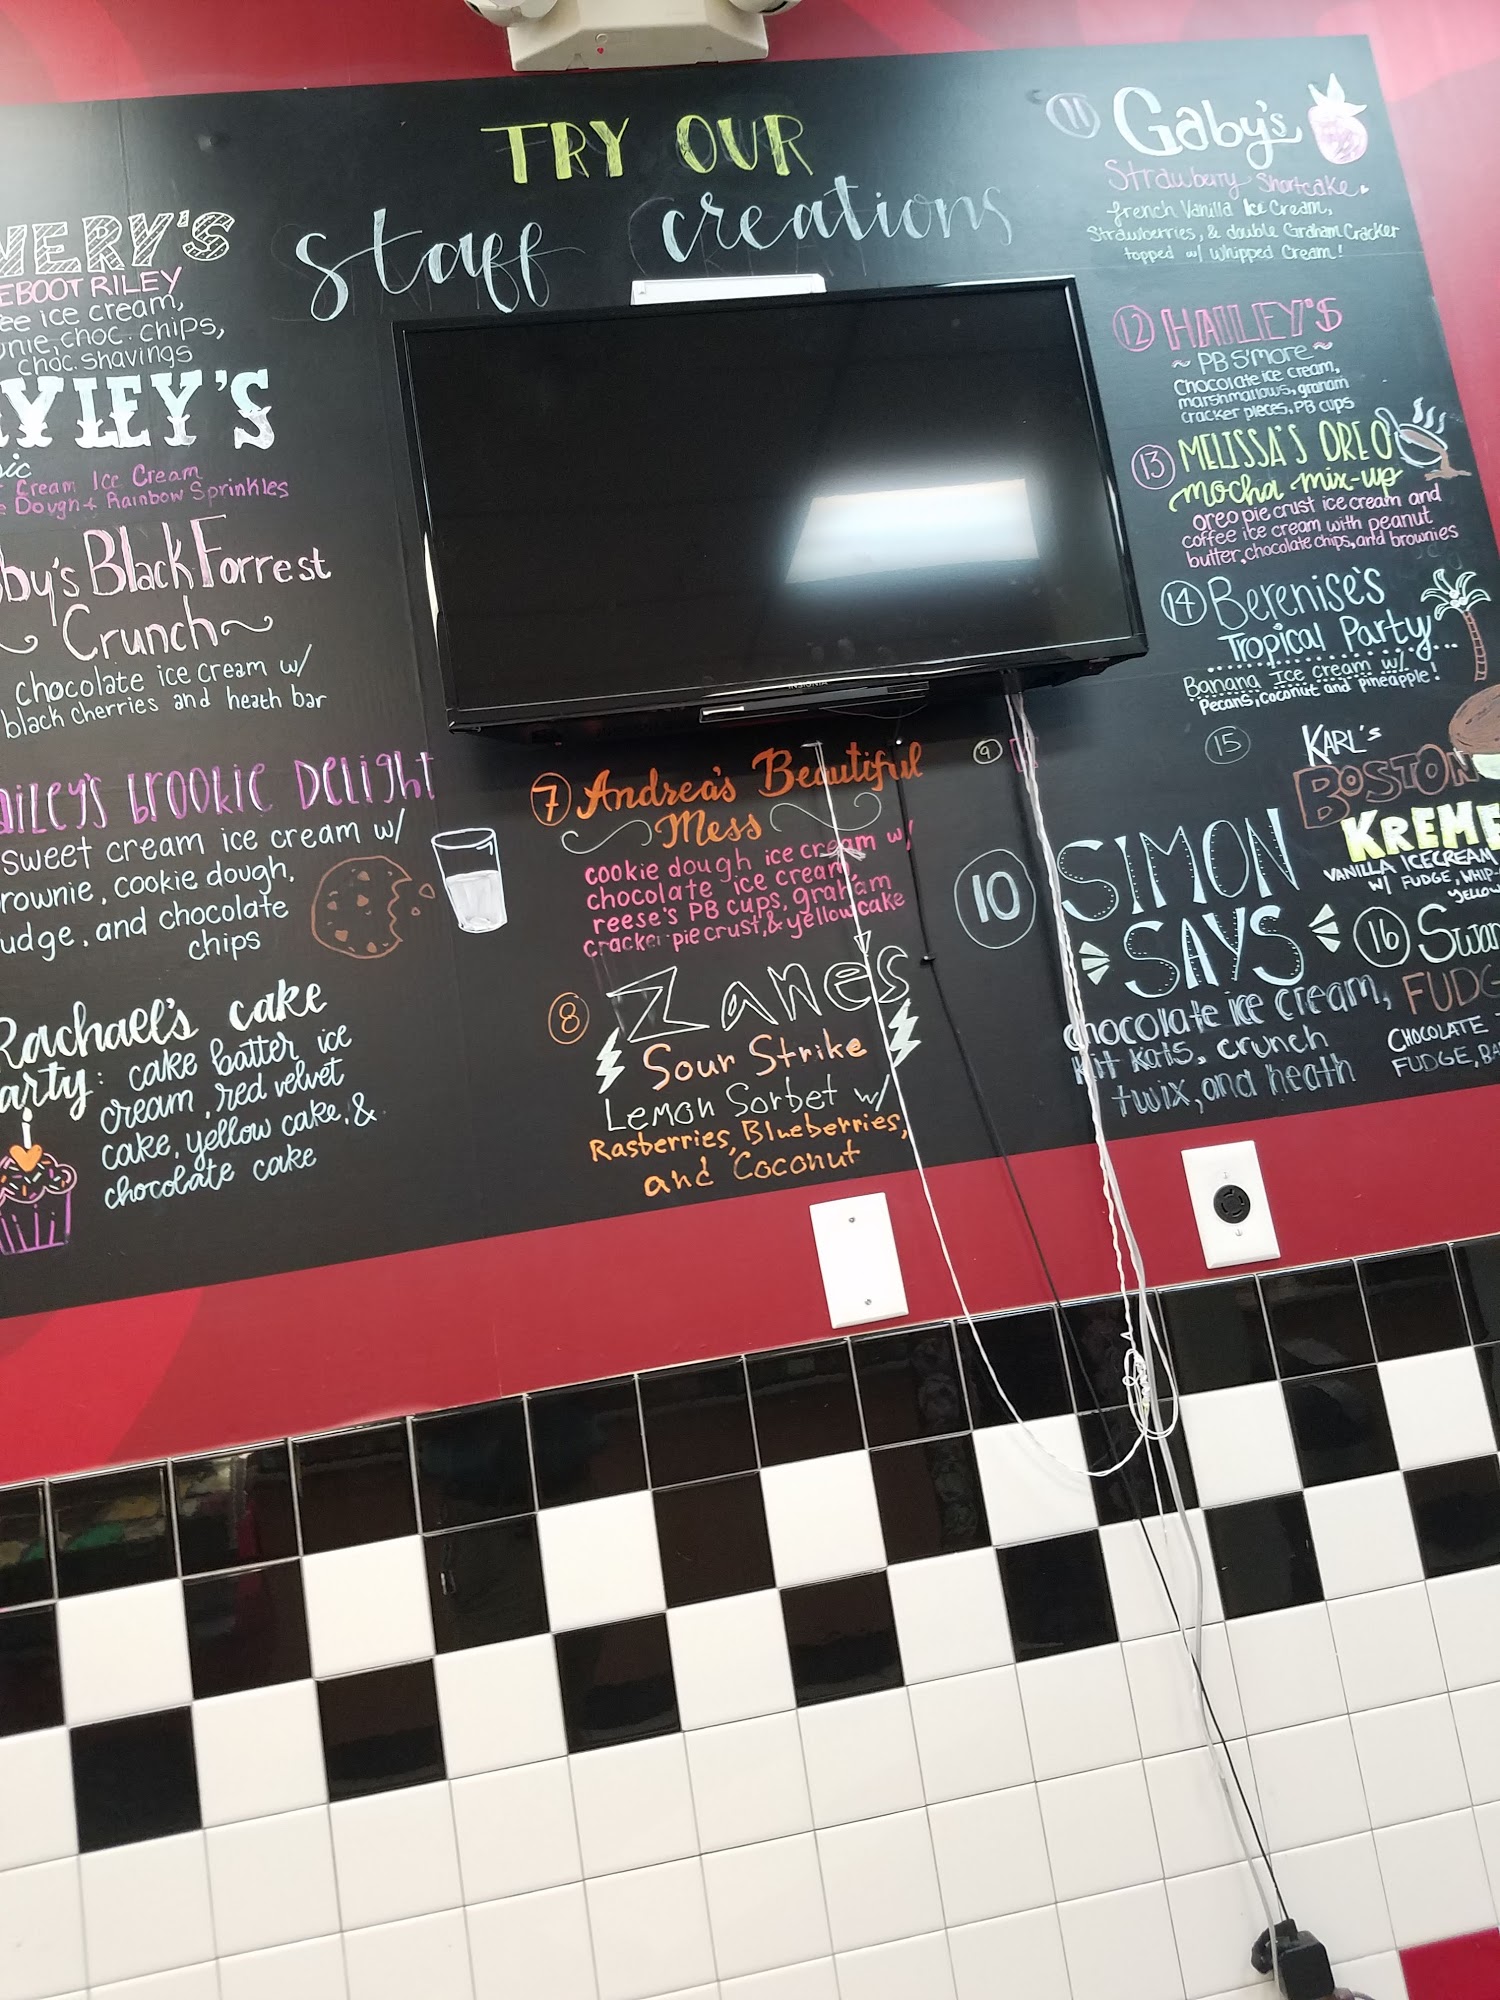 TRY OUR
staff creations
NERY'S
EBOOT RILEY
ee ice cream,
nie, choc. chips,
choc. shavings
YLEY'S
ic
Cream Ice Cream
e Dough + Rainbow Sprinkles
by's Black Forrest
Crunch
chocolate ice cream w/
black cherries and heath bar
ailey's brookie Delight
sweet cream ice cream w/
rownie, cookie dough,
udge, and chocolate
chips
Rachael's cake
arty: cake batter ice
cream, red velvet
cake, yellow cake, &
chocolate cake
INSIGNIA
7 Andrea's Beautiful
Mess
cookie dough ice cream w/
chocolate ice cream,
reese's PB cups, graham
cracker pie crust, & yellow cake
8 Zane's
Sour Strike
Lemon Sorbet w/
Rasberries, Blueberries,
and Coconut
9
10 SIMON
SAYS
chocolate ice cream,
kit kats, crunch
twix, and heath
11 Gaby's
Strawberry Shortcake
french Vanilla Ice Cream,
Strawberries, & double Graham Cracker
topped w/ Whipped Cream!
12 HAILEY'S
~ PB S'MORE ~
Chocolate ice cream,
marshmallows, graham
cracker pieces, PB cups
13 MELISSA'S OREO
mocha mix-up
oreo pie crust ice cream and
coffee ice cream with peanut
butter, chocolate chips, and brownies
14 Berenise's
Tropical Party...
Banana Ice cream w/
Pecans, Coconut and pineapple!
15 KARL'S
BOSTON
KREME
VANILLA ICECREAM
W/ FUDGE, WHIP-
yellow
16 Swan
FUDG
CHOCOLATE
FUDGE, BA